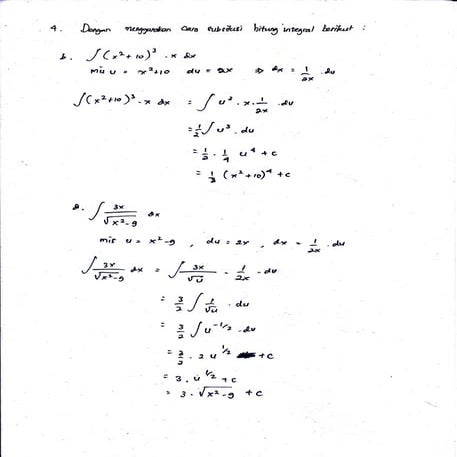 4. Dengan menggunakan cara substitusi hitung integral berikut :
1. ∫(x²+10)³ · x dx
mis u = x²+10 du = 2x ⇒ dx = 1/2x · du
∫(x²+10)³ · x dx = ∫ u³ · x · 1/2x · du
= 1/2 ∫ u³ · du
= 1/2 · 1/4 u⁴ + c
= 1/8 (x²+10)⁴ + c
2. ∫ 3x/√(x²-9) dx
mis u = x²-9 , du = 2x , dx = 1/2x · du
∫ 3x/√(x²-9) dx = ∫ 3x/√u · 1/2x · du
= 3/2 ∫ 1/√u · du
= 3/2 ∫ u^(-1/2) · du
= 3/2 · 2 u^(1/2) + c
= 3 · u^(1/2) + c
= 3 · √(x²-9) + c